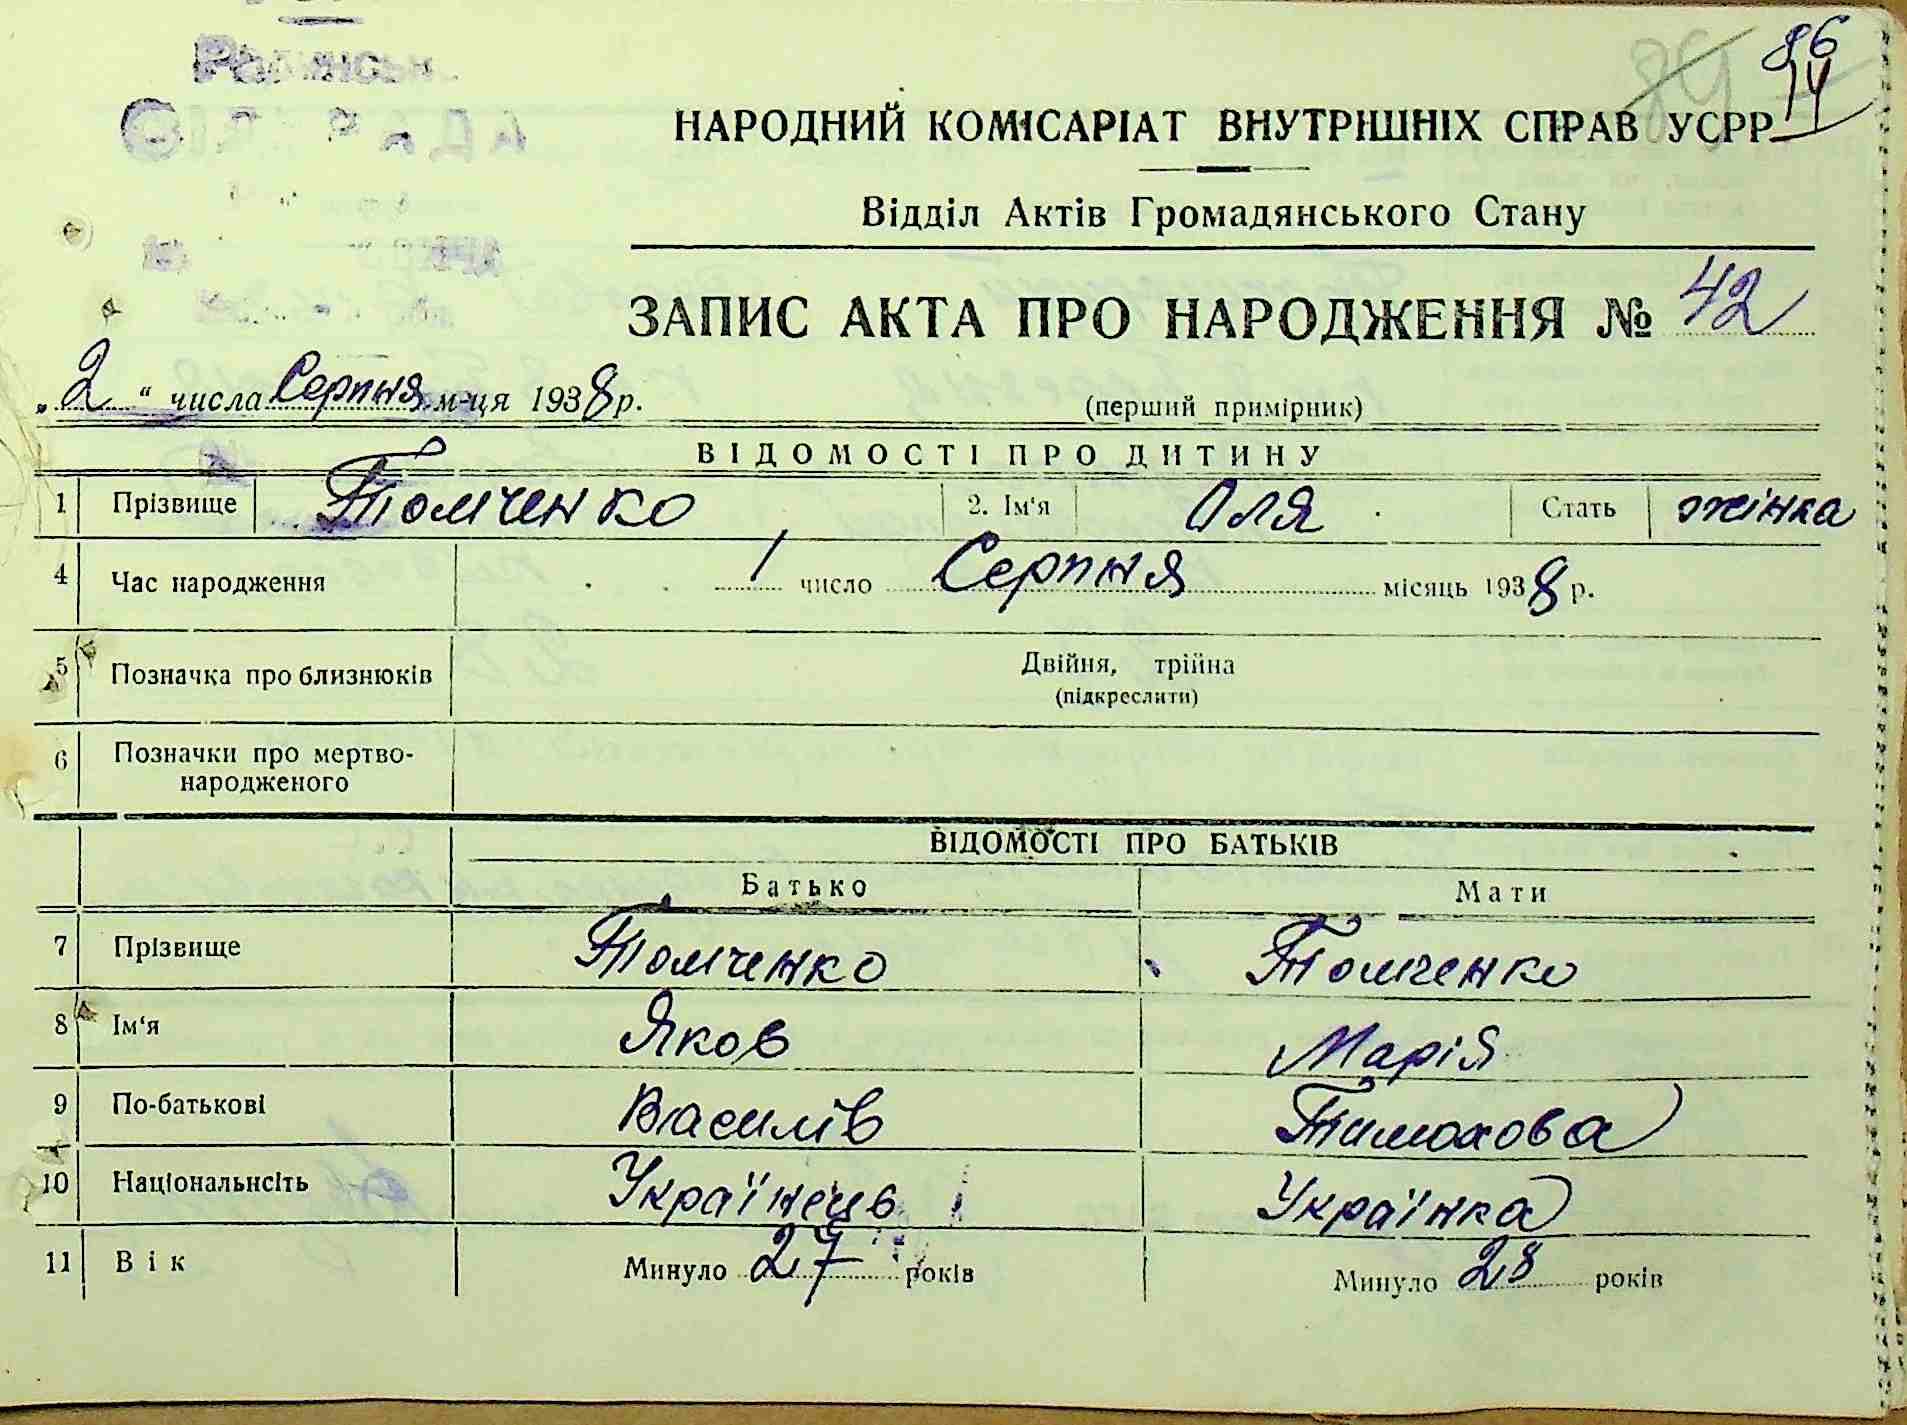 86
84
14
НАРОДНИЙ КОМІСАРІАТ ВНУТРІШНІХ СПРАВ УСРР
Відділ Актів Громадянського Стану
ЗАПИС АКТА ПРО НАРОДЖЕННЯ № 42
„ 2 “ числа Серпня м-ця 1938 р. (перший примірник)
ВІДОМОСТІ ПРО ДИТИНУ
1 Прізвище Томченко 2. Ім'я Оля Стать жінка
4 Час народження 1 число Серпня місяць 1938 р.
5 Позначка про близнюків Двійня, трійна
(підкреслити)
6 Позначки про мертво-
народженого
ВІДОМОСТІ ПРО БАТЬКІВ
Батько Мати
7 Прізвище Томченко Томченко
8 Ім'я Яков Марія
9 По-батькові Василів Тимохова
10 Національнсіть Українець Українка
11 Вік Минуло 27 років Минуло 28 років